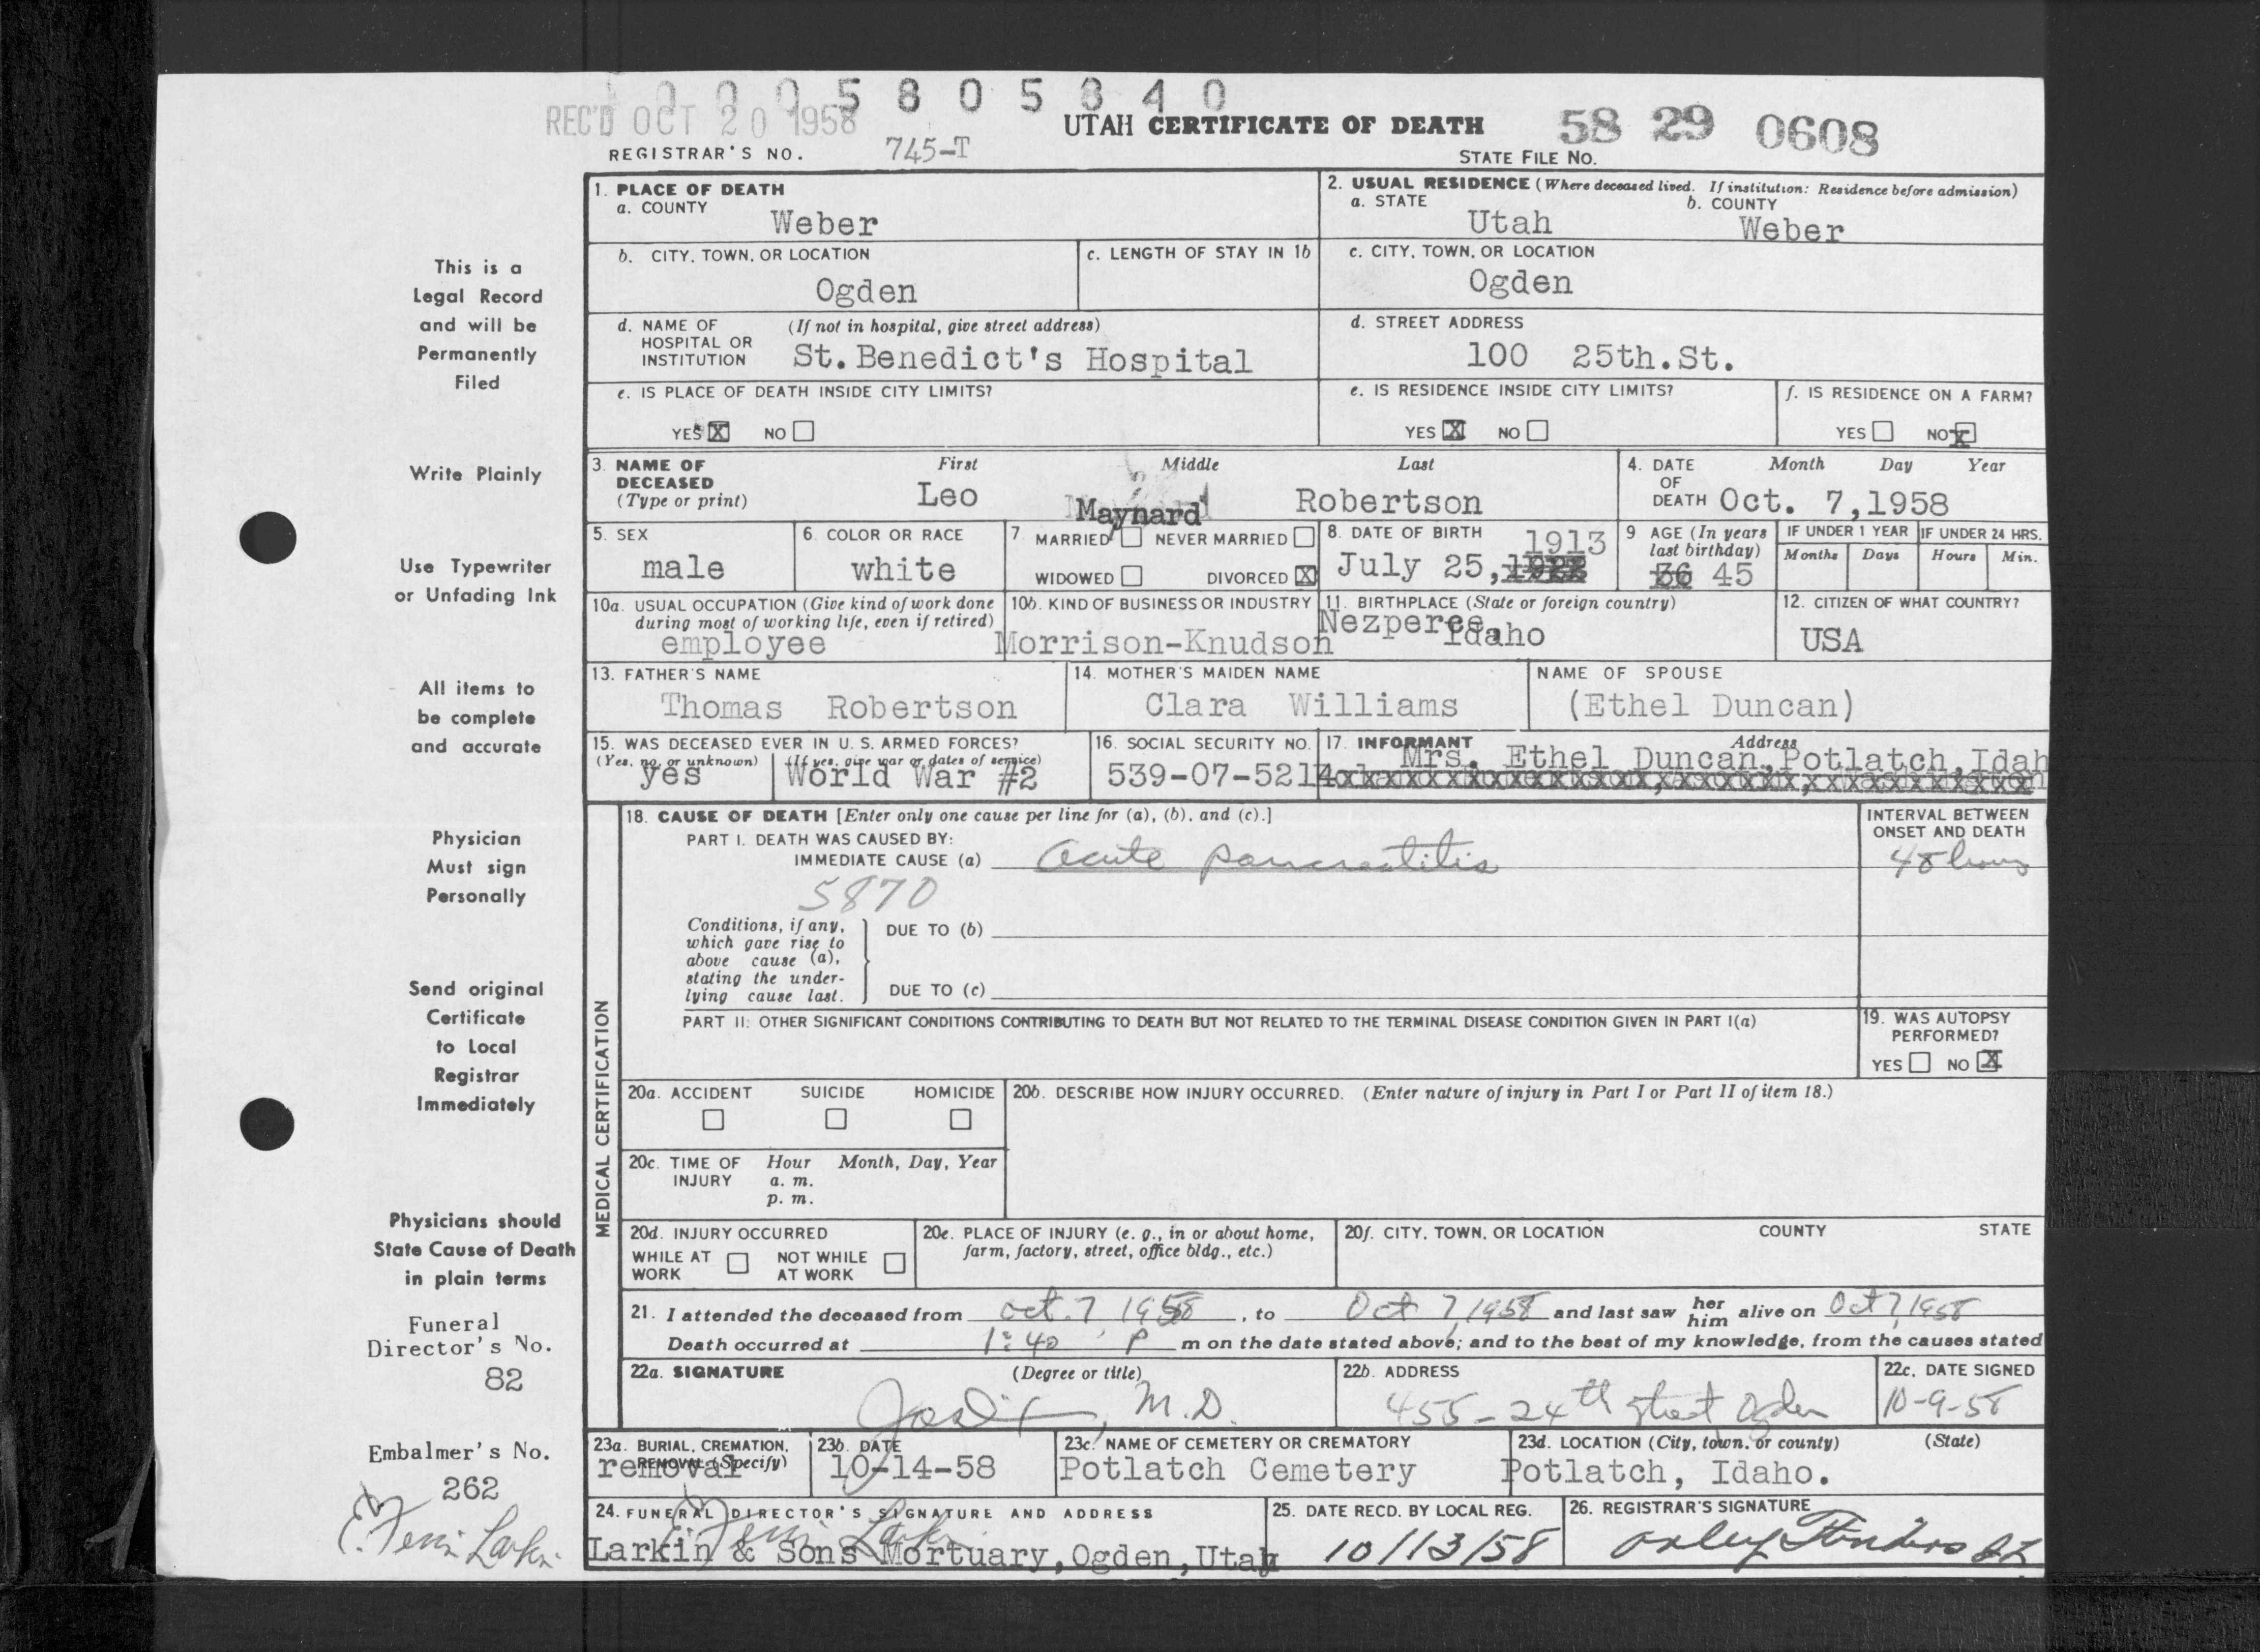 5 8 0 5 8 4 0
REC'D OCT 20 1958
UTAH CERTIFICATE OF DEATH 58 29 0608
REGISTRAR'S NO. 745-T STATE FILE NO.
1. PLACE OF DEATH
a. COUNTY
Weber
2. USUAL RESIDENCE (Where deceased lived. If institution: Residence before admission)
a. STATE b. COUNTY
Utah Weber
b. CITY, TOWN, OR LOCATION
Ogden
c. LENGTH OF STAY IN 1b
c. CITY, TOWN, OR LOCATION
Ogden
d. NAME OF HOSPITAL OR INSTITUTION (If not in hospital, give street address)
St. Benedict's Hospital
d. STREET ADDRESS
100 25th.St.
e. IS PLACE OF DEATH INSIDE CITY LIMITS?
YES X NO
e. IS RESIDENCE INSIDE CITY LIMITS?
YES X NO
f. IS RESIDENCE ON A FARM?
YES NO X
3. NAME OF DECEASED (Type or print)
First Middle Last
Leo Maynard Robertson
4. DATE OF DEATH Month Day Year
Oct. 7,1958
5. SEX
male
6. COLOR OR RACE
white
7 MARRIED NEVER MARRIED
WIDOWED DIVORCED X
8. DATE OF BIRTH
1913
July 25,
9 AGE (In years last birthday)
36 45
IF UNDER 1 YEAR
Months Days
IF UNDER 24 HRS.
Hours Min.
10a. USUAL OCCUPATION (Give kind of work done during most of working life, even if retired)
employee
10b. KIND OF BUSINESS OR INDUSTRY
Morrison-Knudson
11. BIRTHPLACE (State or foreign country)
Nezperce,
Idaho
12. CITIZEN OF WHAT COUNTRY?
USA
13. FATHER'S NAME
Thomas Robertson
14. MOTHER'S MAIDEN NAME
Clara Williams
NAME OF SPOUSE
(Ethel Duncan)
15. WAS DECEASED EVER IN U. S. ARMED FORCES?
(Yes, no, or unknown) (If yes, give war or dates of service)
yes World War #2
16. SOCIAL SECURITY NO.
539-07-5214
17. INFORMANT Address
Mrs. Ethel Duncan, Potlatch, Idah
MEDICAL CERTIFICATION
18. CAUSE OF DEATH [Enter only one cause per line for (a), (b), and (c).]
PART I. DEATH WAS CAUSED BY:
IMMEDIATE CAUSE (a) acute pancreatitis
5870
INTERVAL BETWEEN ONSET AND DEATH
48 hours
Conditions, if any, which gave rise to above cause (a), stating the under-lying cause last.
DUE TO (b)
DUE TO (c)
PART II: OTHER SIGNIFICANT CONDITIONS CONTRIBUTING TO DEATH BUT NOT RELATED TO THE TERMINAL DISEASE CONDITION GIVEN IN PART I(a)
19. WAS AUTOPSY PERFORMED?
YES NO X
20a. ACCIDENT SUICIDE HOMICIDE
20b. DESCRIBE HOW INJURY OCCURRED. (Enter nature of injury in Part I or Part II of item 18.)
20c. TIME OF INJURY Hour Month, Day, Year
a. m.
p. m.
20d. INJURY OCCURRED
WHILE AT WORK NOT WHILE AT WORK
20e. PLACE OF INJURY (e. g., in or about home, farm, factory, street, office bldg., etc.)
20f. CITY, TOWN, OR LOCATION COUNTY STATE
21. I attended the deceased from Oct. 7 1958, to Oct 7, 1958 and last saw her him alive on Oct 7, 1958
Death occurred at 1:40 P m on the date stated above; and to the best of my knowledge, from the causes stated
22a. SIGNATURE (Degree or title)
M.D.
22b. ADDRESS
455-24th street Ogden
22c. DATE SIGNED
10-9-58
23a. BURIAL, CREMATION, REMOVAL (Specify)
removal
23b. DATE
10-14-58
23c. NAME OF CEMETERY OR CREMATORY
Potlatch Cemetery
23d. LOCATION (City, town, or county) (State)
Potlatch, Idaho.
24. FUNERAL DIRECTOR'S SIGNATURE AND ADDRESS
Larkin & Sons Mortuary, Ogden, Utah
25. DATE RECD. BY LOCAL REG.
10/13/58
26. REGISTRAR'S SIGNATURE
This is a
Legal Record
and will be
Permanently
Filed
Write Plainly
Use Typewriter
or Unfading Ink
All items to
be complete
and accurate
Physician
Must sign
Personally
Send original
Certificate
to Local
Registrar
Immediately
Physicians should
State Cause of Death
in plain terms
Funeral
Director's No.
82
Embalmer's No.
262
Larkin